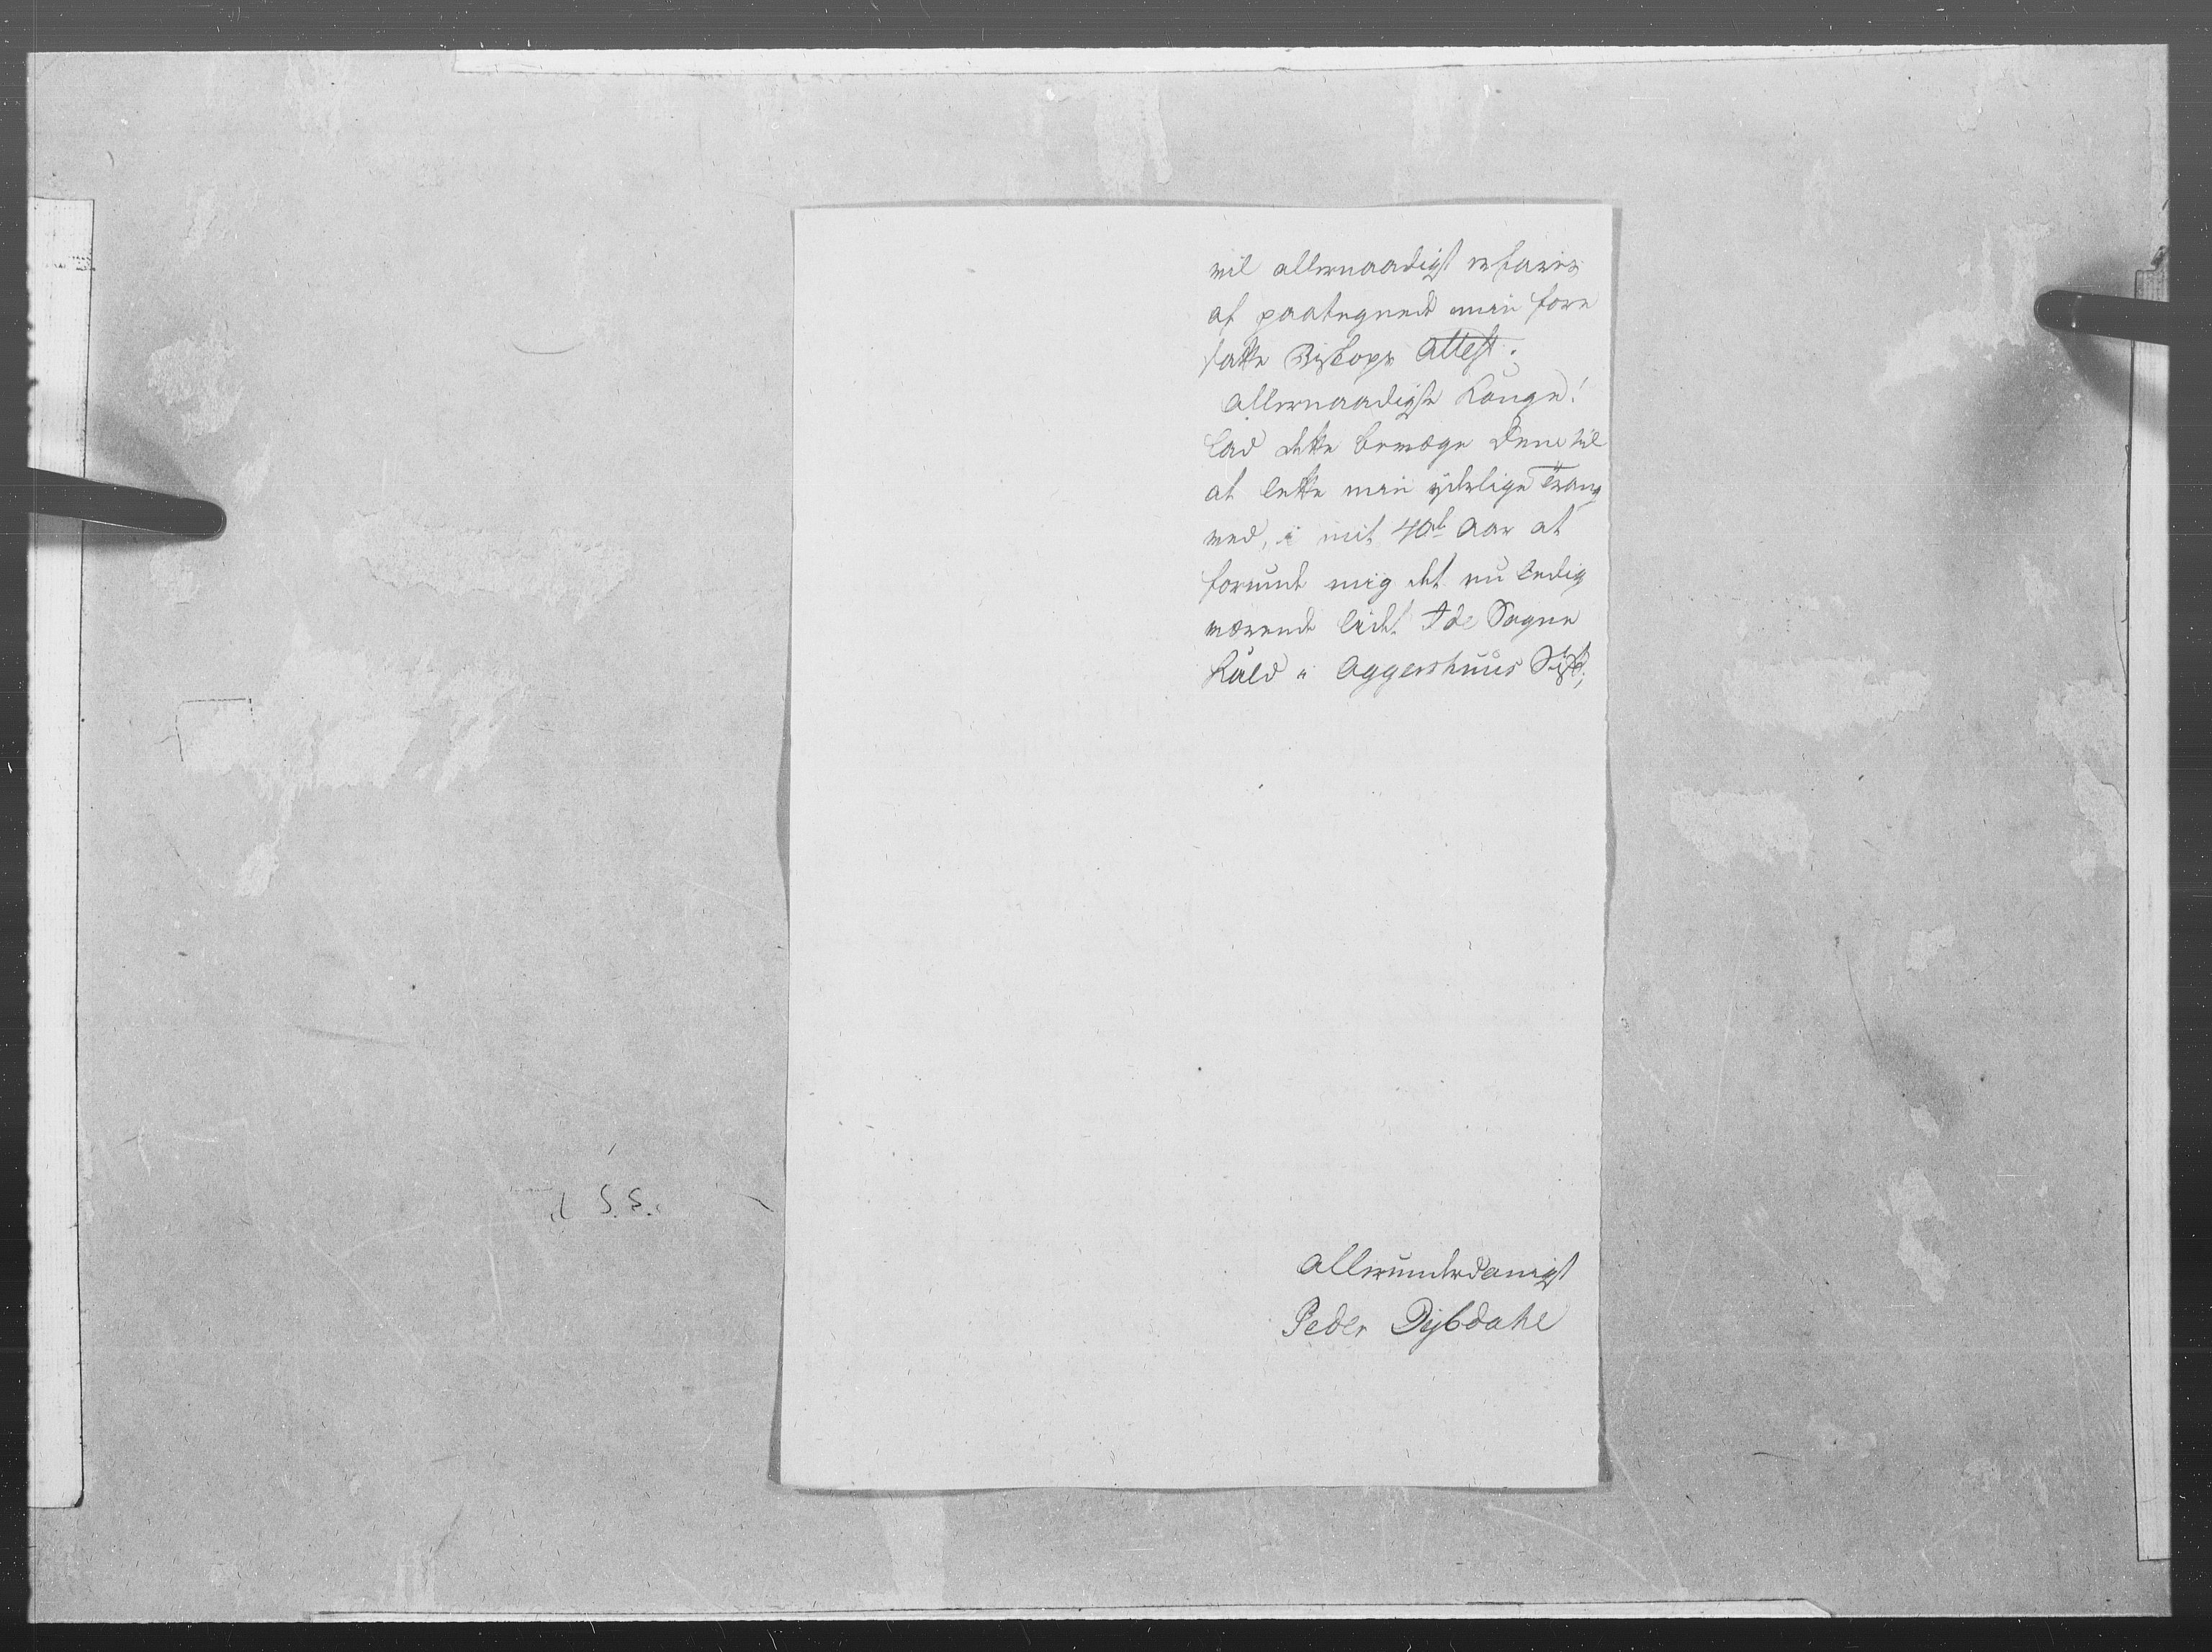 vil allernaadigst erfares
af paategnede min fore
satte Biskops Attest.
Allernaadigste Konge!
Lad dette bevæge Dem til
at lette min yderlige Trang
ved, i mit 40de Aar at
forunde mig det nu ledig
værende lidet Ide Sogne
Kald i Aggershuus Stift;
Allerunderdanigst
Peder Dybdahl
S. S.